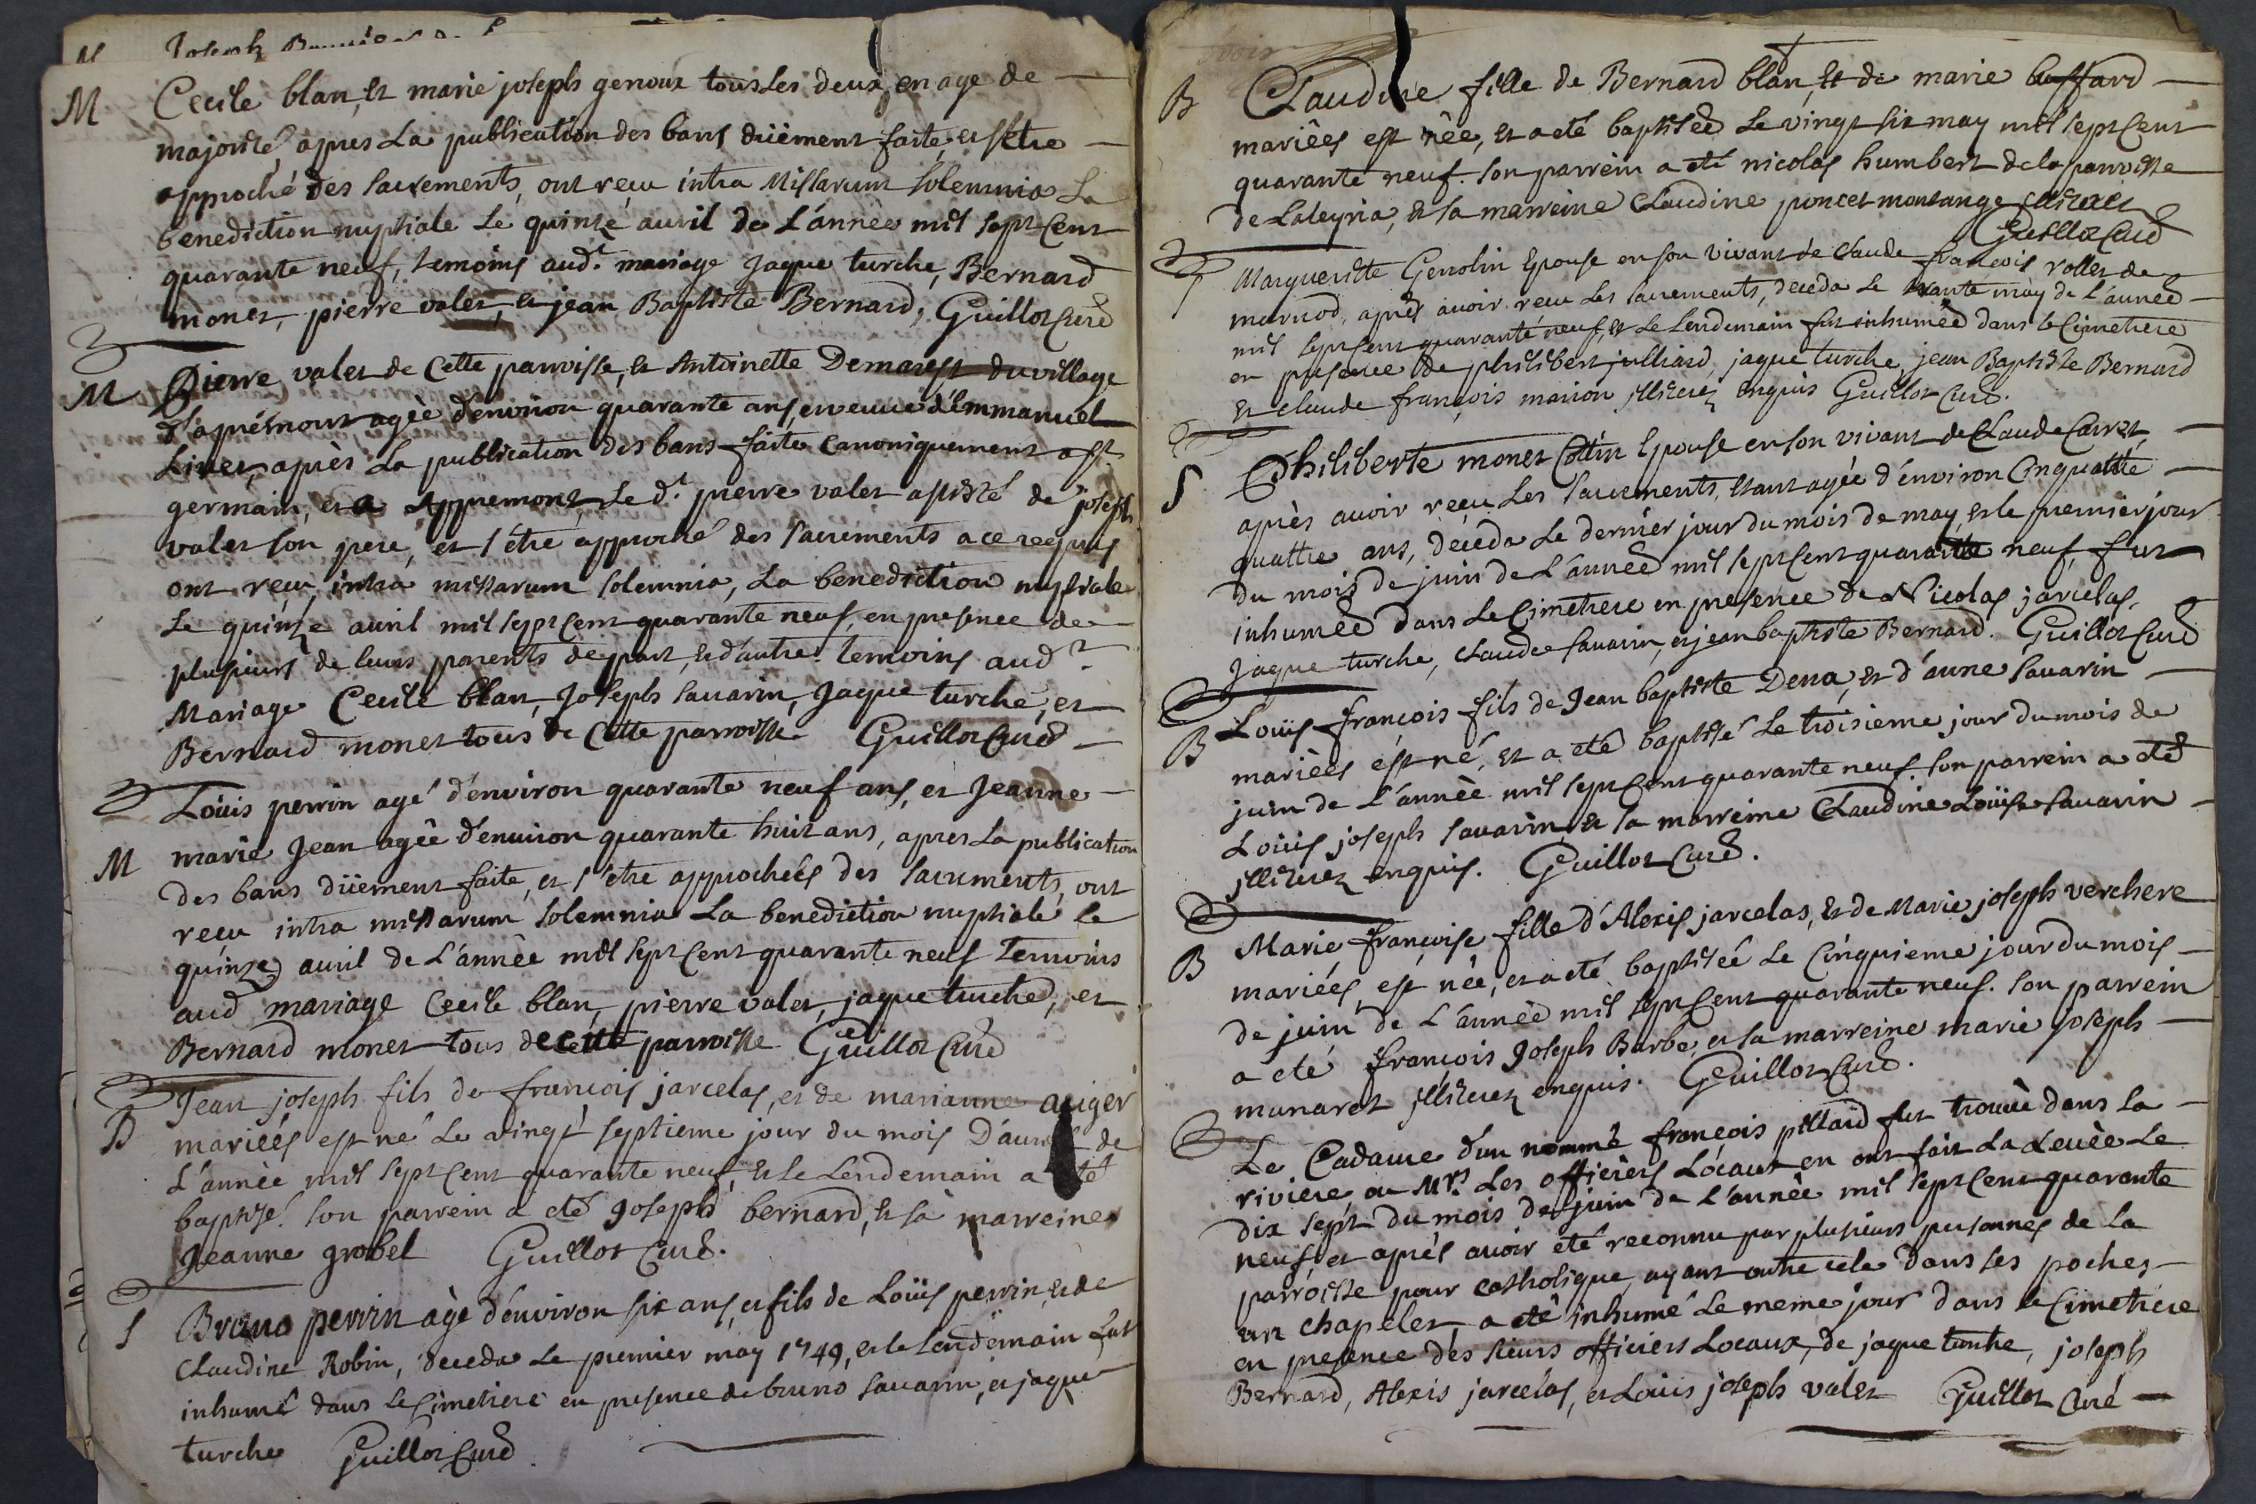 M Joseph
M Cecile blan, et marie joseph genoux tous les deux en age de
majorité, apres La publication des bans düement faite, et s'etre
approché des sacrements, ont reçu intra Missarum solemnia La
benediction nuptiale Le quinze avril de L'année mil sept cent
quarante neuf, temoins aud.t mariage Jaque turche, Bernard
monet, pierre valet, et jean Baptiste Bernard, Guillot Curé
M Pierre valet de Cette parroisse, et Antoinette Demarest du village
d'apremont agée d'environ quarante ans, et veuve d'Emmanuel
Livet, après La publication des bans faite canoniquement a st
germain, et a Appremont, Le d.t pierre valet assisté de joseph
valet son pere, et s'étre approché des sacrements a ce requis
ont reçu, intra missarum solemnia, La benediction nuptiale
Le quinze avril mil sept cent quarante neuf, en presence de
plusieurs de leurs parents de part, et d'autre. temoins aud.t
Mariage Cecile blan, Joseph savarin, Jaque turche, et
Bernard monet tous de Cette parroisse. Guillot Curé
Loüis perrin agé d'environ quarante neuf ans, et Jeanne
M marie Jean agée d'environ quarante huit ans, apres La publication
des bans düement faite, et s'etre approchées des sacrements, ont
reçu intra missarum solemnia La benediction nuptiale le
quinze avril de L'année mil sept cent quarante neuf Temoins
aud mariage Cecile blan, pierre valet, jaque turche, et
Bernard monet tous de cette parroisse Guillot Curé
Jean joseph fils de françois jarcelas, et de marianne auger
B mariées est né Le vingt septieme jour du mois D'avril de
L'année mil sept cent quarante neuf, et le Lendemain a été
baptisé. son parrein a eté Joseph bernard, et sa marreine
Jeanne grobel Guillot Curé.
S Bruno perrin àgé d'environ six ans, et fils de Loüis perrin, et de
Claudine Robin, deceda Le premier may 1749, et le Lendemain fut
inhumé dans Le Cimetiere en presence de bruno savarin, et jaque
turche Guillot Curé.
B Claudine fille de Bernard blan, et de marie buffard
mariées est née, et a eté baptisée Le vingt six may mil sept cent
quarante neuf. son parrein a eté nicolas humbert de la parroisse
de Laleyria, et sa marreine Claudine poncet montange illiterés
Guillot Curé
S Marguerite Genolin Epouse en son vivant de Claude françois rollet de
marnod, après avoir reçu Les sacrements, deceda Le trante may de L'année
mil sept cent quarante neuf, et Le Lendemain fut inhumée dans le Cimetiere
en presence de philibert julliard, jaque turche, jean Baptiste Bernard
et claude françois marion illiterez enquis Guillot Curé.
S Philiberte monet Cottin Epouse en son vivant de Claude Carret,
après avoir reçu Les sacrements, et ant agée d'environ Cinquatte
quattre ans, deceda Le dernier jour du mois de may, et le premier jour
du mois de juin de L'année mil sept cent quarante neuf, fut
inhumée dans Le Cimetiere en presence de Nicolas jarcelas,
Jaque turche, claude savarin, et jean baptiste Bernard. Guillot Curé
B Loüis françois fils de Jean baptiste Dena, et d'anne savarin
mariées est né, et a eté baptisé Le troisieme jour du mois de
juin de L'année mil sept cent quarante neuf. son parrein a eté
Loüis joseph savarin, et sa marreine Claudine Loüise savarin
illiterez enquis. Guillot Curé.
B Marie françoise fille d'Alexis jarcelas, et de Marie joseph verchere
mariées, est née, et a eté baptisée Le Cinquieme jour du mois
de juin de L'année mil sept cent quarante neuf. son parrein
a eté françois Joseph Barbe, et sa marreine marie joseph
munaret illiterez enquis. Guillot Curé.
Le Cadavre d'un nommé françois pillard fut trouvé dans La
riviere ou Mrs. Les officiers Locaux en ont fait La Levée Le
dix sept du mois de juin de L'année mil sept cent quarante
neuf, et après avoir eté reconnu par plusieurs personnes de La
parroisse pour catholique, ayant outre cela dans ses poches
un chapelet, a eté inhumé Le meme jour dans le Cimetiere
en presence des sieurs officiers Locaux, de jaque turche, joseph
Bernard, Alexis jarcelas, et Loüis joseph valet Guillot Curé